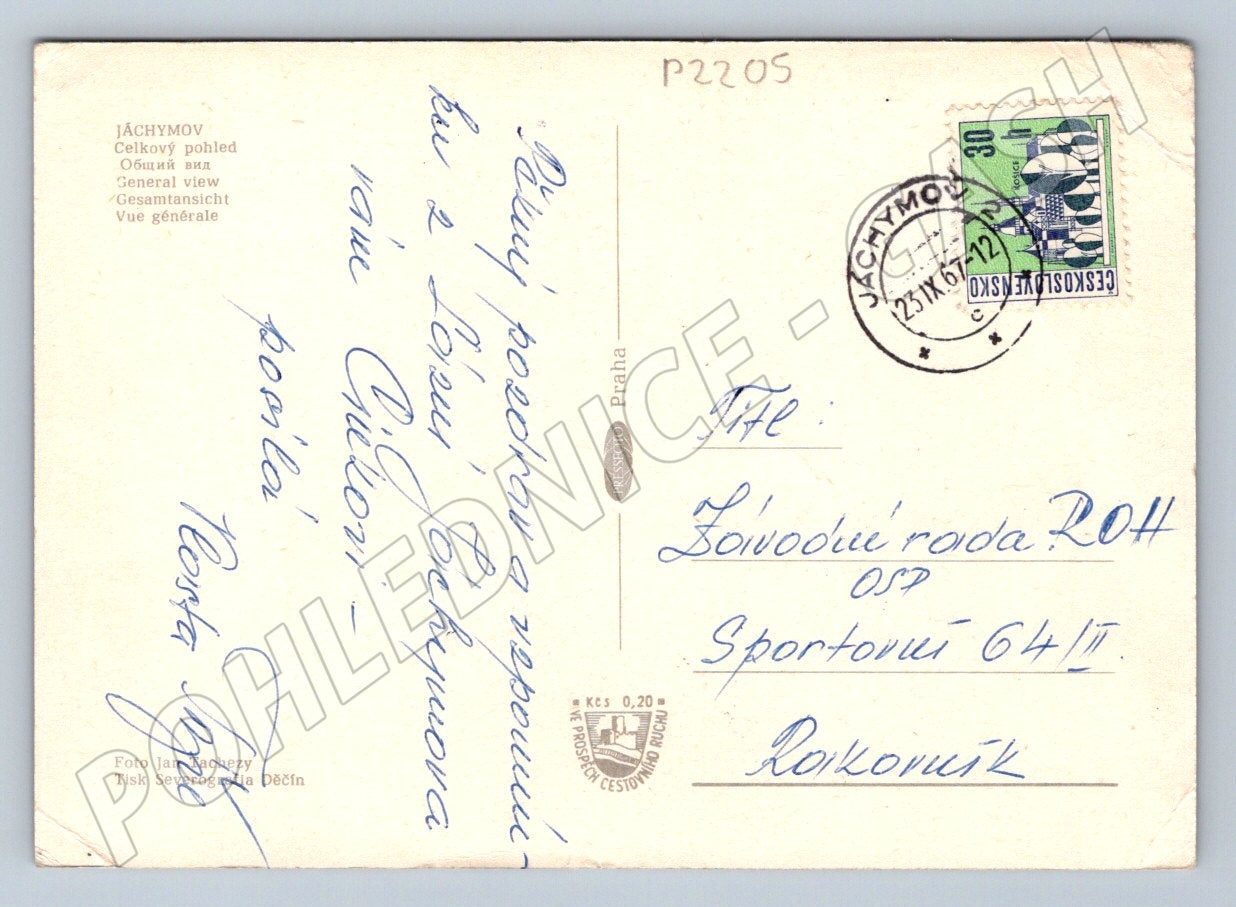 P2205
JÁCHYMOV
Celkový pohled
Общий вид
General view
Gesamtansicht
Vue générale
pozdrav a vzpomín-
ku z Lázní Jáchymova
Vám
posílá
Vlasta
Foto Jan Tachezy
Tisk Severografia Děčín
PRESSFOTO Praha
Kčs 0,20
VE PROSPĚCH CESTOVNÍHO RUCHU
30 h
KOŠICE
ČESKOSLOVENSKO
JÁCHYMOV 2
23.IX.67-12
c
Titl:
Závodní rada ROH
OSP
Sportovní 64/II.
Rakovník
POHLEDNICE - CASH